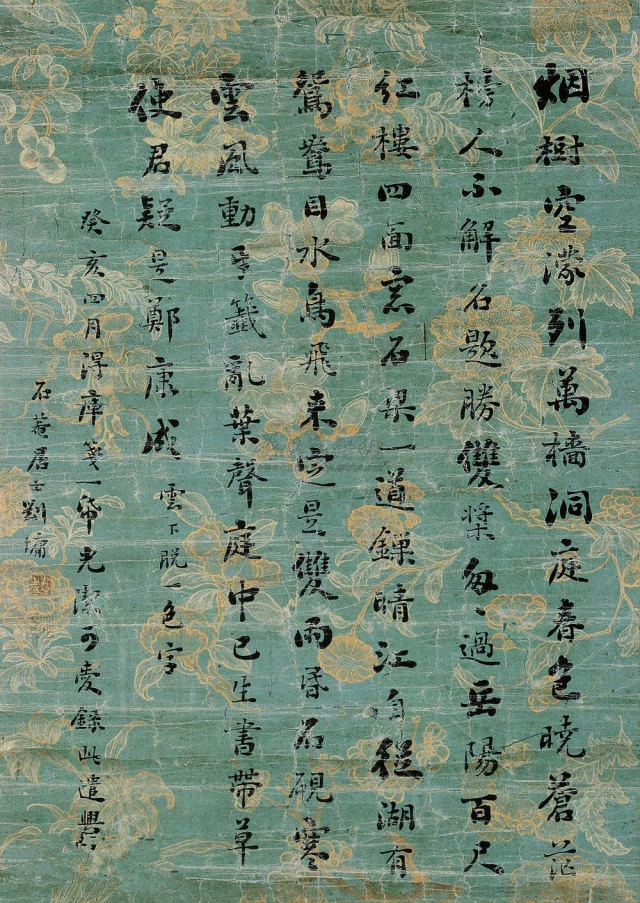 烟樹空濛列萬檣洞庭春色曉蒼茫
榜人不解名題勝雙槳匆々過岳陽百尺
紅樓四面窓石梁一道鏁晴江自從湖有
鴛鴦目水鳥飛来定是雙雨昏石硯寒
雲風動牙籤亂葉聲庭中已生書帶草
使君疑是鄭康成雲下脱一色字
癸亥四月淂庫箋一帋光潔可愛錄此遣興
石菴居士劉墉